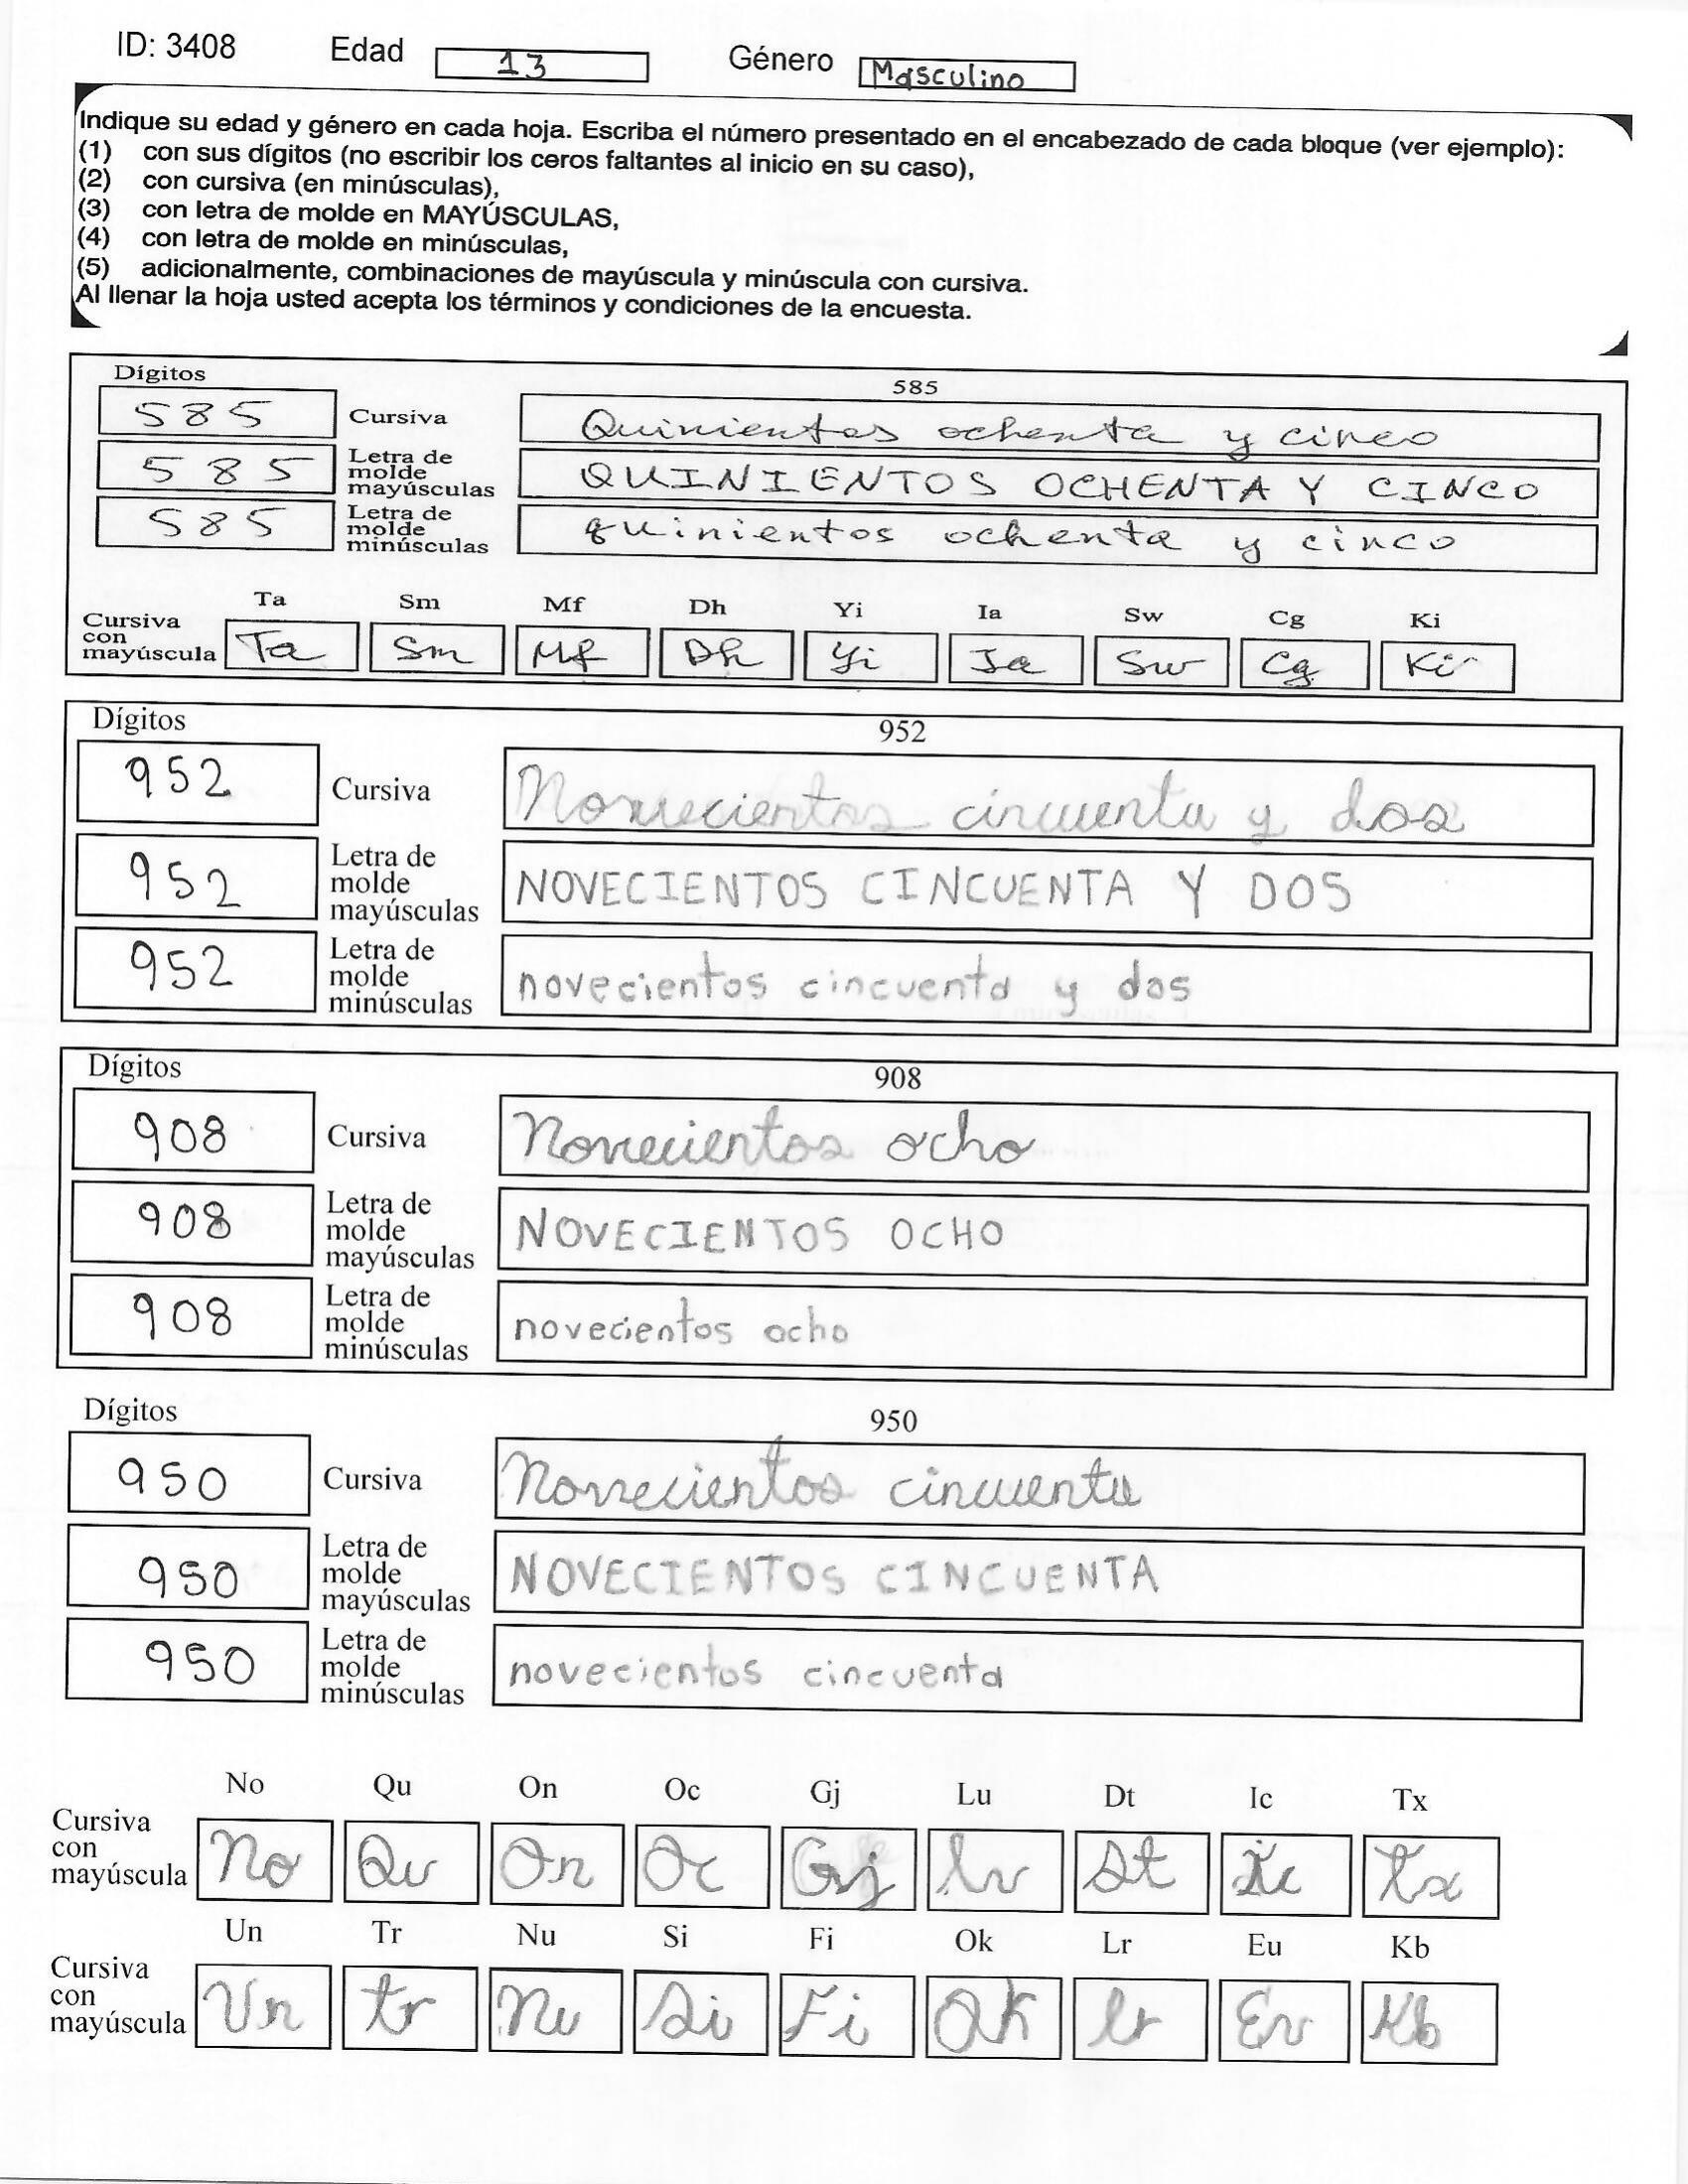 ID: 3408 Edad 13 Género Masculino
Indique su edad y género en cada hoja. Escriba el número presentado en el encabezado de cada bloque (ver ejemplo):
(1) con sus dígitos (no escribir los ceros faltantes al inicio en su caso),
(2) con cursiva (en minúsculas),
(3) con letra de molde en MAYÚSCULAS,
(4) con letra de molde en minúsculas,
(5) adicionalmente, combinaciones de mayúscula y minúscula con cursiva.
Al llenar la hoja usted acepta los términos y condiciones de la encuesta.
Dígitos 585
585 Cursiva Quinientos ochenta y cinco
585 Letra de molde mayúsculas QUINIENTOS OCHENTA Y CINCO
585 Letra de molde minúsculas quinientos ochenta y cinco
Ta Sm Mf Dh Yi Ia Sw Cg Ki
Cursiva con mayúscula Ta Sm Mf Dh Yi Ia Sw Cg Ki
Dígitos 952
952 Cursiva Novecientos cincuenta y dos
952 Letra de molde mayúsculas NOVECIENTOS CINCUENTA Y DOS
952 Letra de molde minúsculas novecientos cincuenta y dos
Dígitos 908
908 Cursiva Novecientos ocho
908 Letra de molde mayúsculas NOVECIENTOS OCHO
908 Letra de molde minúsculas novecientos ocho
Dígitos 950
950 Cursiva Novecientos cincuenta
950 Letra de molde mayúsculas NOVECIENTOS CINCUENTA
950 Letra de molde minúsculas novecientos cincuenta
No Qu On Oc Gj Lu Dt Ic Tx
Cursiva con mayúscula No Qu On Oc Gj Lu Dt Ic Tx
Un Tr Nu Si Fi Ok Lr Eu Kb
Cursiva con mayúscula Un Tr Nu Si Fi Ok Lr Eu Kb